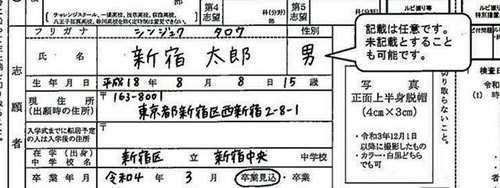 チャレンジスクール、一橋高校、荻窪高校、
八王子拓真高校、砂川高校を除く定時制は変更できません。
第4
志望
科(分野)
第5
志望
フリガナ シンジュク タロウ 性別
志願者
氏名 新宿 太郎 男
記載は任意です。
未記載とすること
も可能です。
生年月日 平成18年8月8日 15歳
現住所
(出願時の住所)
〒163-8001
東京都新宿区西新宿2-8-1
入学式までに転居予定
の人は入学後の住所
〒
在学(出身)
中学校
新宿区 立 新宿中央 中学校
卒業年月 令和04年3月 卒業見込・卒業
写真
正面上半身脱帽
(4cm×3cm)
・令和3年12月1日
以降に撮影したもの
・カラー・白黒どちら
でも可
切り取らないこと。
ルビ振り等
科(分野)
検査日